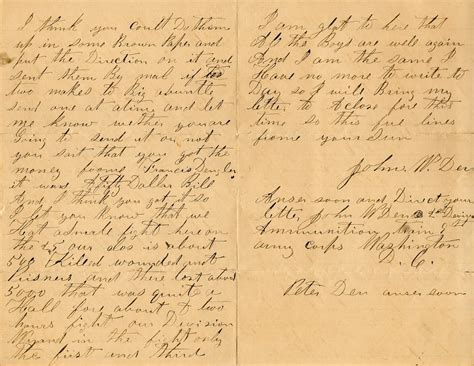 I think you could Do them
up in some Brown Paper and
put the Direction on it and
sent them By mal if
two makes to Big abuntle
send one at atime and let
me know wether you are
Going to send it or not
you said that you got the
money from Francis
it was a fifty Dallar Bill
And I think you got it so
I let you Know that we
Hat a smale fight here on
the 15 our los is about
500 Killed wounded and
Prisners and there lost about
5000 that was quite a
Hall for about two
hours fight our Division
in the fight only
the first and Third
I am glat to here that
All the Boys are well again
And I am the same I
Have no more to write to
Day so I will Bring my
letter to A close for this
time so this few lines
frome your Sun
John W. Den
Anser soon and Direct your
letter John W Den
Ammunition Train 5th
army Corps Washington
D. C.
Peter Den anser soon